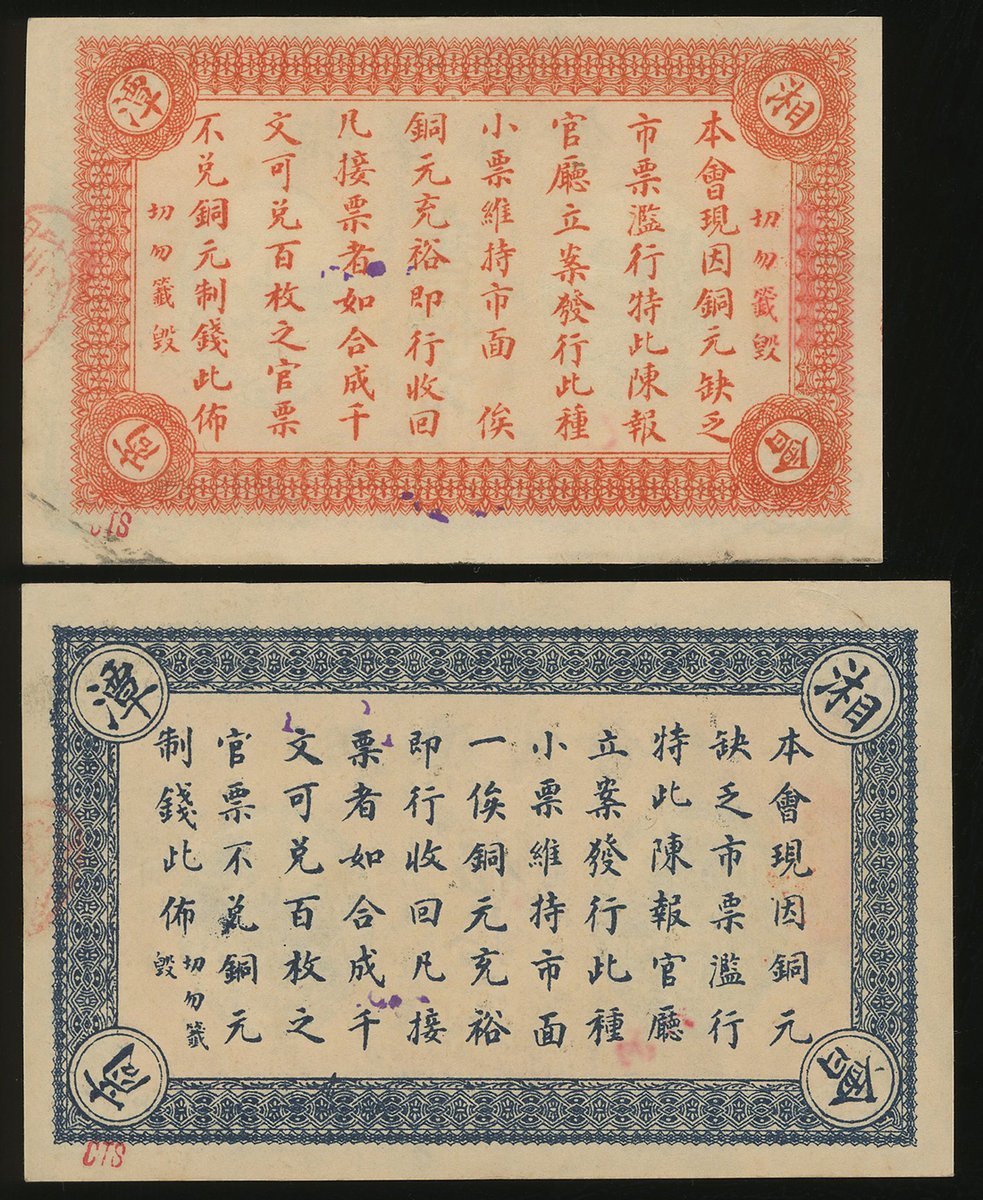 湘
潭
切勿籤毀
本會現因銅元缺乏
市票濫行特此陳報
官廳立案發行此種
小票維持市面 俟
銅元充裕即行收回
凡接票者如合成千
文可兑百枚之官票
不兑銅元制錢此佈
切勿籤毀
商
CTS
湘
潭
本會現因銅元
缺乏市票濫行
特此陳報官廳
立案發行此種
小票維持市面
一俟銅元充裕
即行收回凡接
票者如合成千
文可兑百枚之
官票不兑銅元
制錢此佈
切勿籤
毀
商
CTS